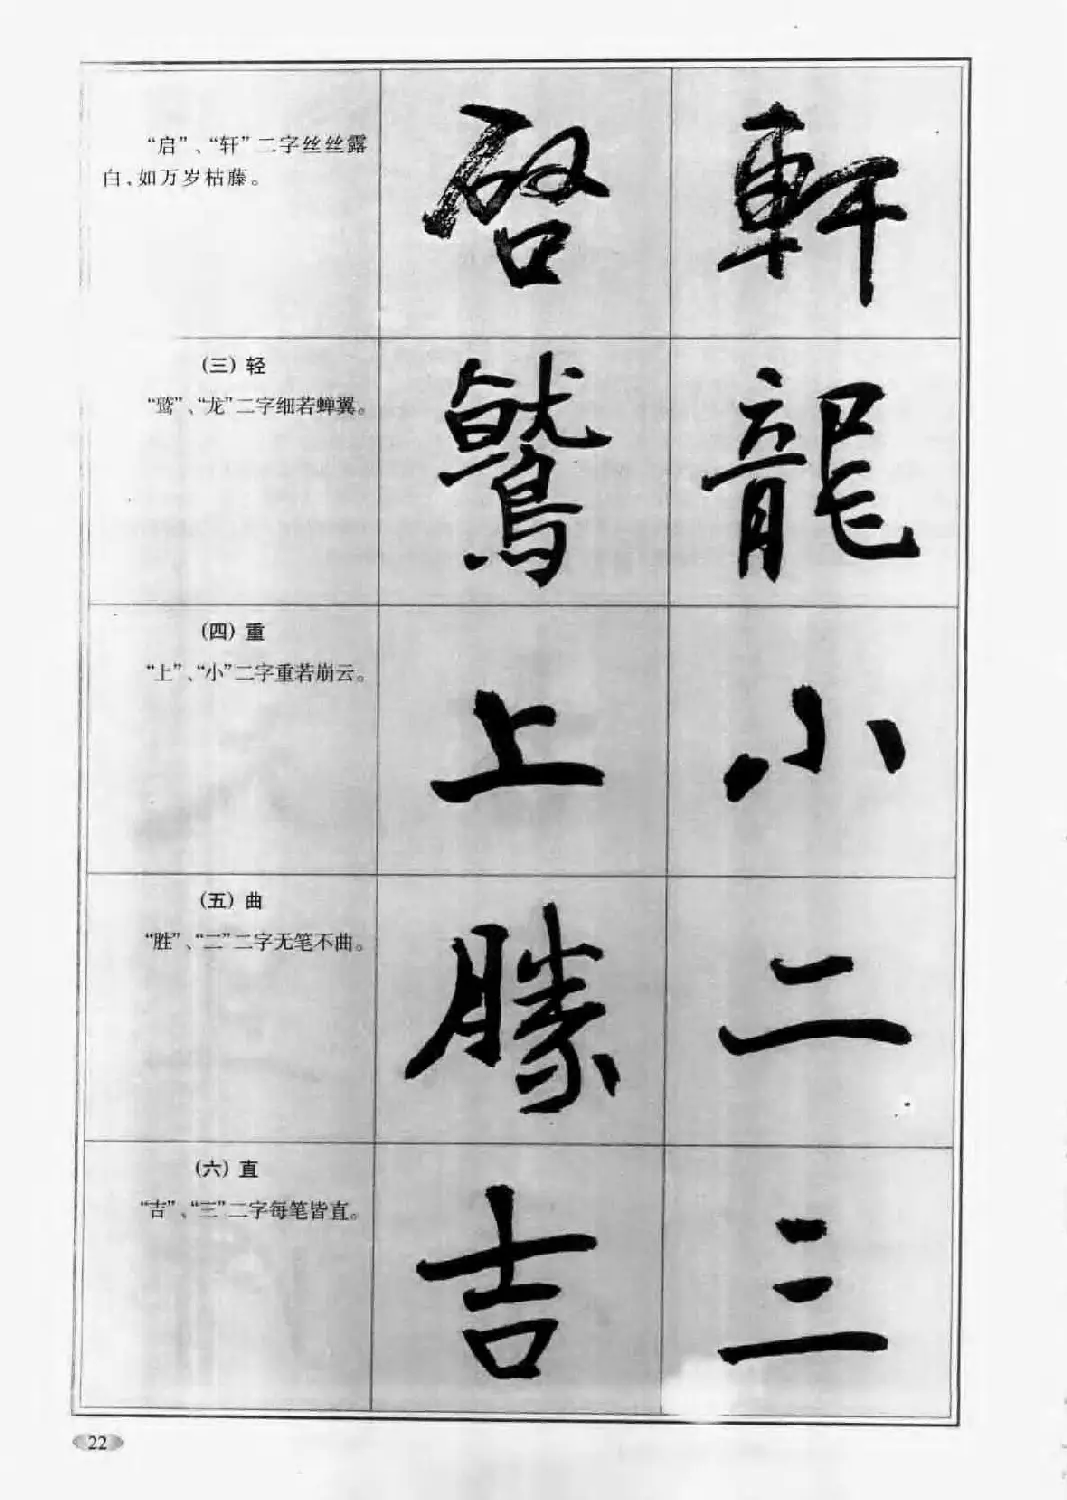 “启”、“轩”二字丝丝露
白,如万岁枯藤。
启 軒
(三) 轻
“鹫”、“龙”二字细若蝉翼。
鷲 龍
(四) 重
“上”、“小”二字重若崩云。
上 小
(五) 曲
“胜”、“二”二字无笔不曲。
勝 二
(六) 直
“吉”、“三”二字每笔皆直。
吉 三
22